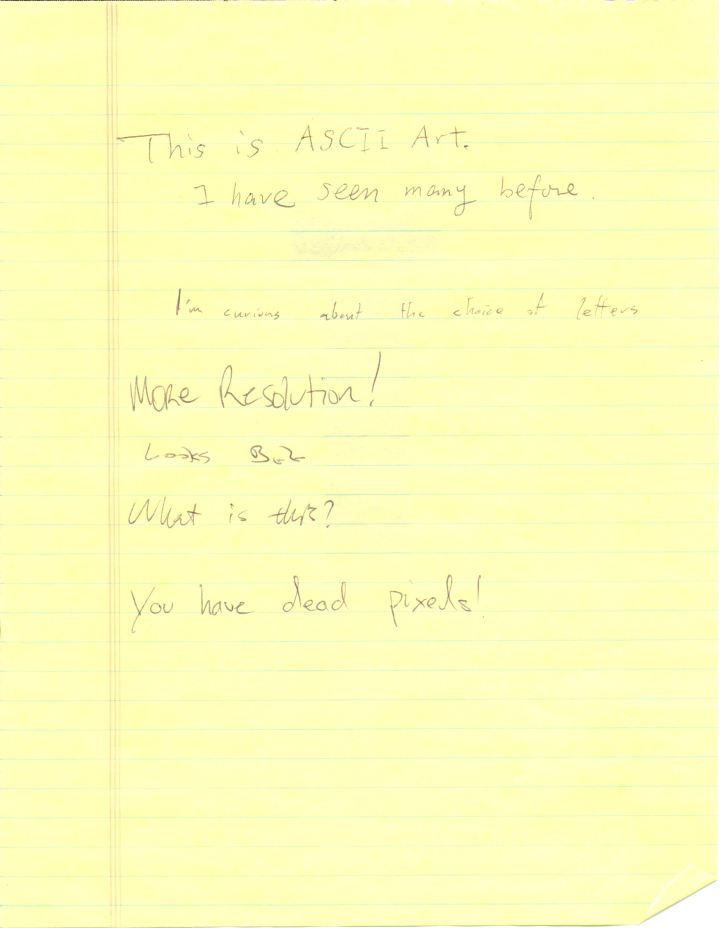 This is ASCII Art.
I have seen many before.
I'm curious about the choice of letters
More Resolution!
Looks
What is this?
You have dead pixels!